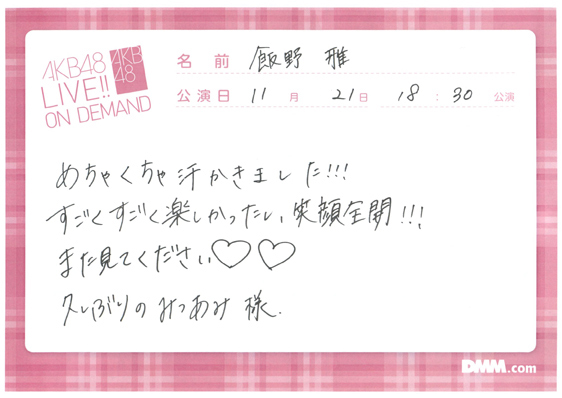 AKB48
LIVE!!
ON DEMAND
AKB
48
名前 飯野 雅
公演日 11月 21日 18:30 公演
めちゃくちゃ汗かきました!!!
すごくすごく楽しかったし、笑顔全開!!!
また見てください♡♡
久しぶりのみつあみ様.
DMM.com